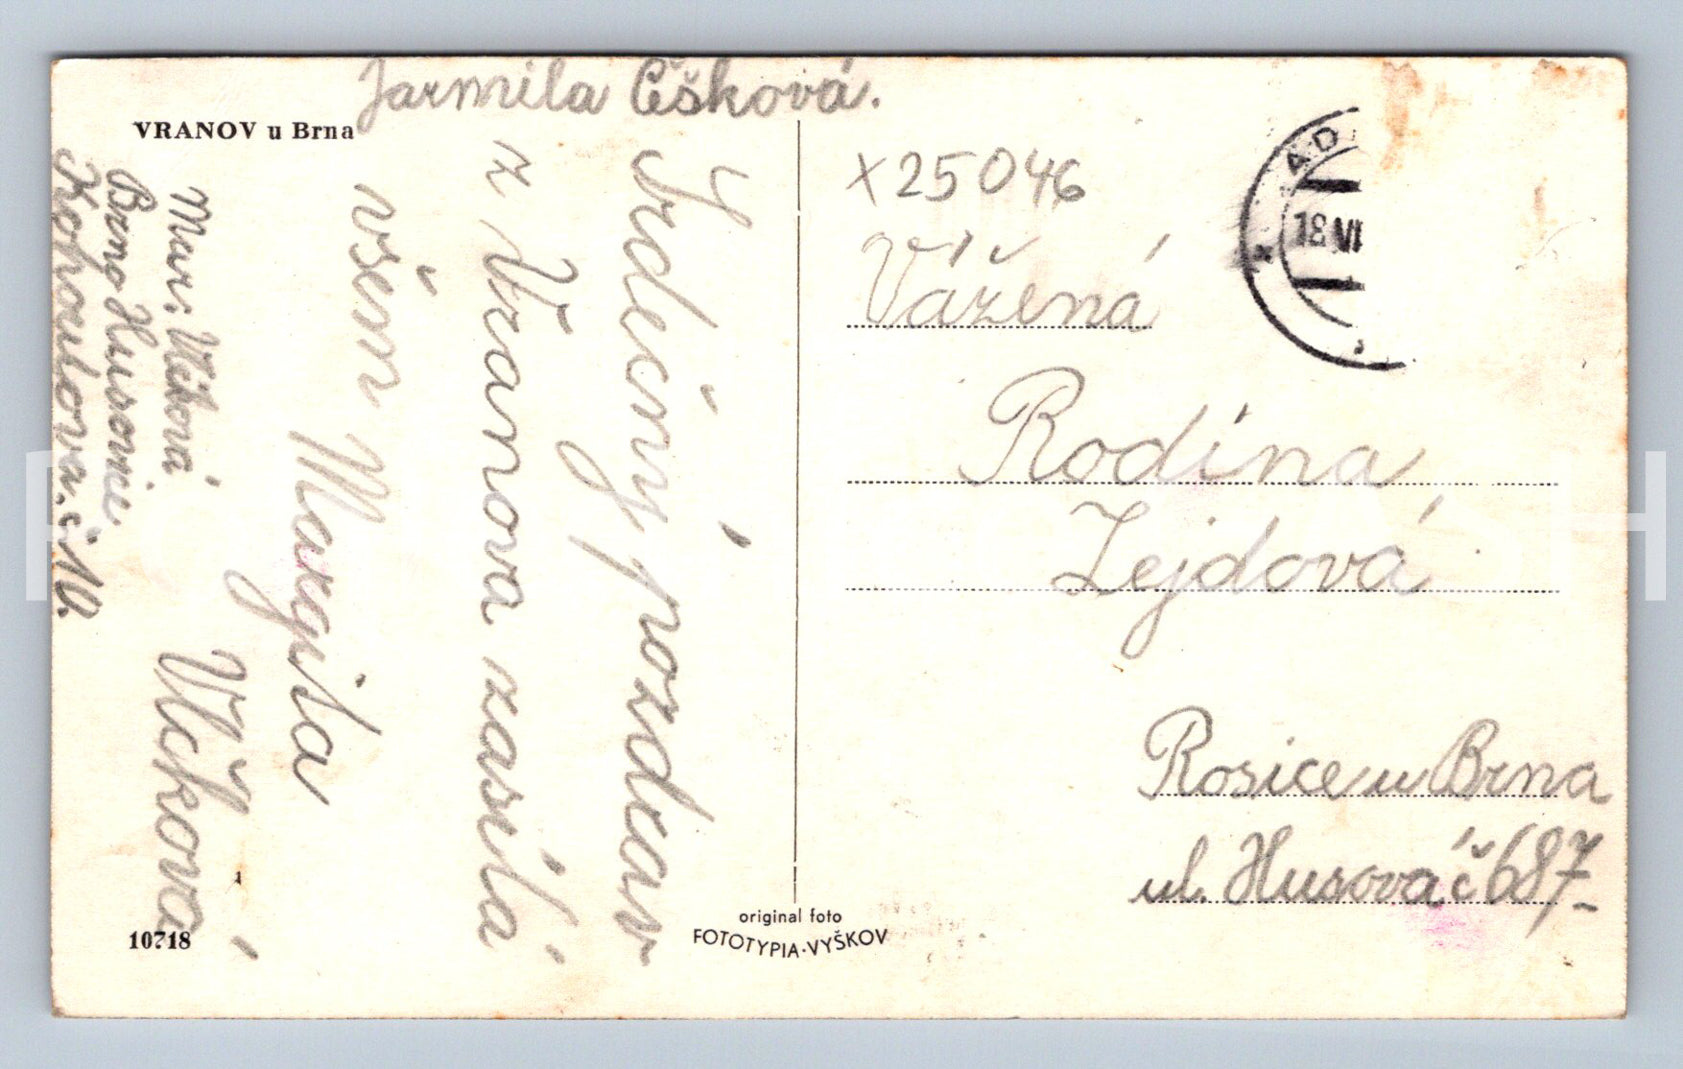 Jarmila Češková.
VRANOV u Brna
Srdečný pozdrav
z Vranova zasílá
všem Margita
Vlčková
Mar: Vlčková
Brno Husovice
Kohoutova. č. 10.
10718
original foto
FOTOTYPIA-VYŠKOV
x25046
18 VI
Vážená
Rodina
Zejdová
Rosice u Brna
ul. Husova č 687